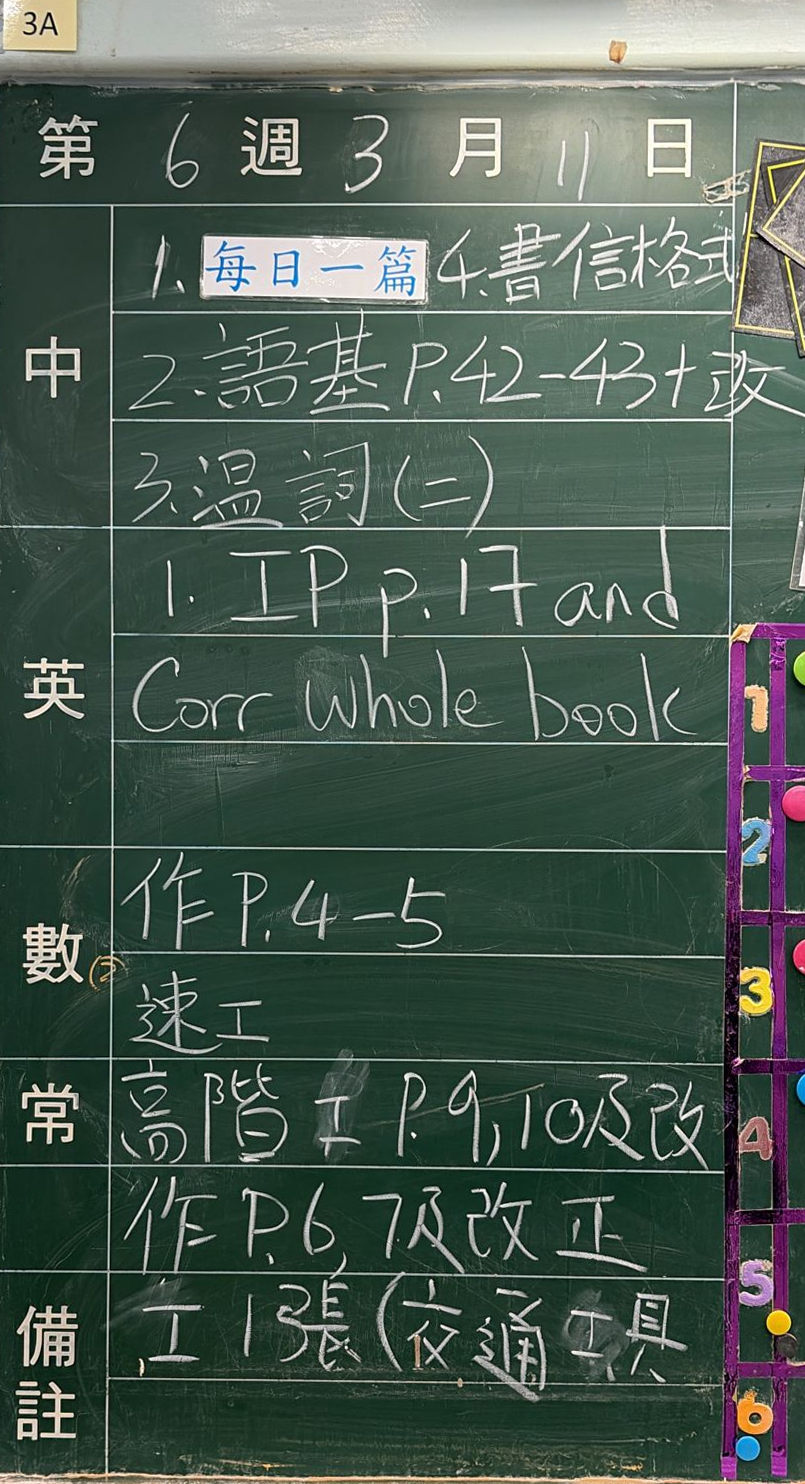 3A
第 6 週 3 月 11 日
中
1. 每日一篇 4.書信格式
2.語基 P.42-43+改
3.温詞(二)
英
1. IP p.17 and
Corr whole book
數
作 P.4-5
速工
常
高階工 P.9,10及改
作 P.6,7及改正
備註
工 1張(交通工具
1
2
3
4
5
6